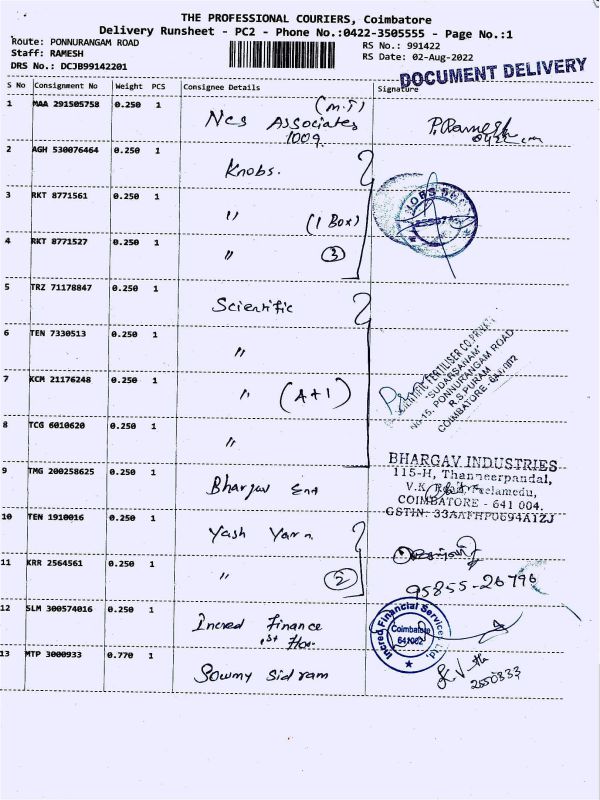 THE PROFESSIONAL COURIERS, Coimbatore
Delivery Runsheet - PC2 - Phone No.:0422-3505555 - Page No.:1
Route: PONNURANGAM ROAD
Staff: RAMESH
DRS No.: DCJB99142201
RS No.: 991422
RS Date: 02-Aug-2022
DOCUMENT DELIVERY
S No Consignment No Weight PCS Consignee Details Signature
1 MAA 291505758 0.250 1 Ncs Associates (m.T)
100g
P. Ramesh
2 AGH 530076464 0.250 1 Knobs.
3 RKT 8771561 0.250 1 " (1 Box)
4 RKT 8771527 0.250 1 " 3
5 TRZ 71178847 0.250 1 Scientific
6 TEN 7330513 0.250 1 "
7 KCM 21176248 0.250 1 " (A+1)
8 TCG 6010620 0.250 1 "
SCIENTIFIC FERTILISER CO. PRIVATE
"SUDARSANAM"
No. 15, PONNURANGAM ROAD
R.S.PURAM
COIMBATORE - 641 002
9 TMG 200258625 0.250 1 Bhargav Ent
BHARGAV INDUSTRIES
115-H, Thanneerpandal,
V.K. Road, Peelamedu,
COIMBATORE - 641 004.
GSTIN: 33AAFHP0694A1ZJ
10 TEN 1910016 0.250 1 Yash Yarn
11 KRR 2564561 0.250 1 " 2
95855-26796
12 SLM 300574016 0.250 1 Incred Finance
1st Floor
Incred Financial Services Ltd.
Coimbatore
641002
13 MTP 3000933 0.770 1 Sowmy Sidram
2550833